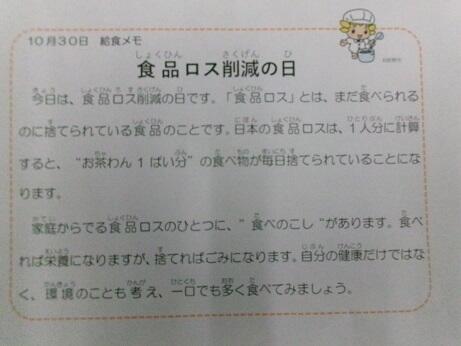 10月30日 給食メモ
食品ロス削減の日
今日は、食品ロス削減の日です。「食品ロス」とは、まだ食べられる
のに捨てられている食品のことです。日本の食品ロスは、1人分に計算
すると、“お茶わん1ぱい分”の食べ物が毎日捨てられていることにな
ります。
家庭からでる食品ロスのひとつに、”食べのこし“があります。食べ
れば栄養になりますが、捨てればごみになります。自分の健康だけではな
く、環境のことも考え、一口でも多く食べてみましょう。